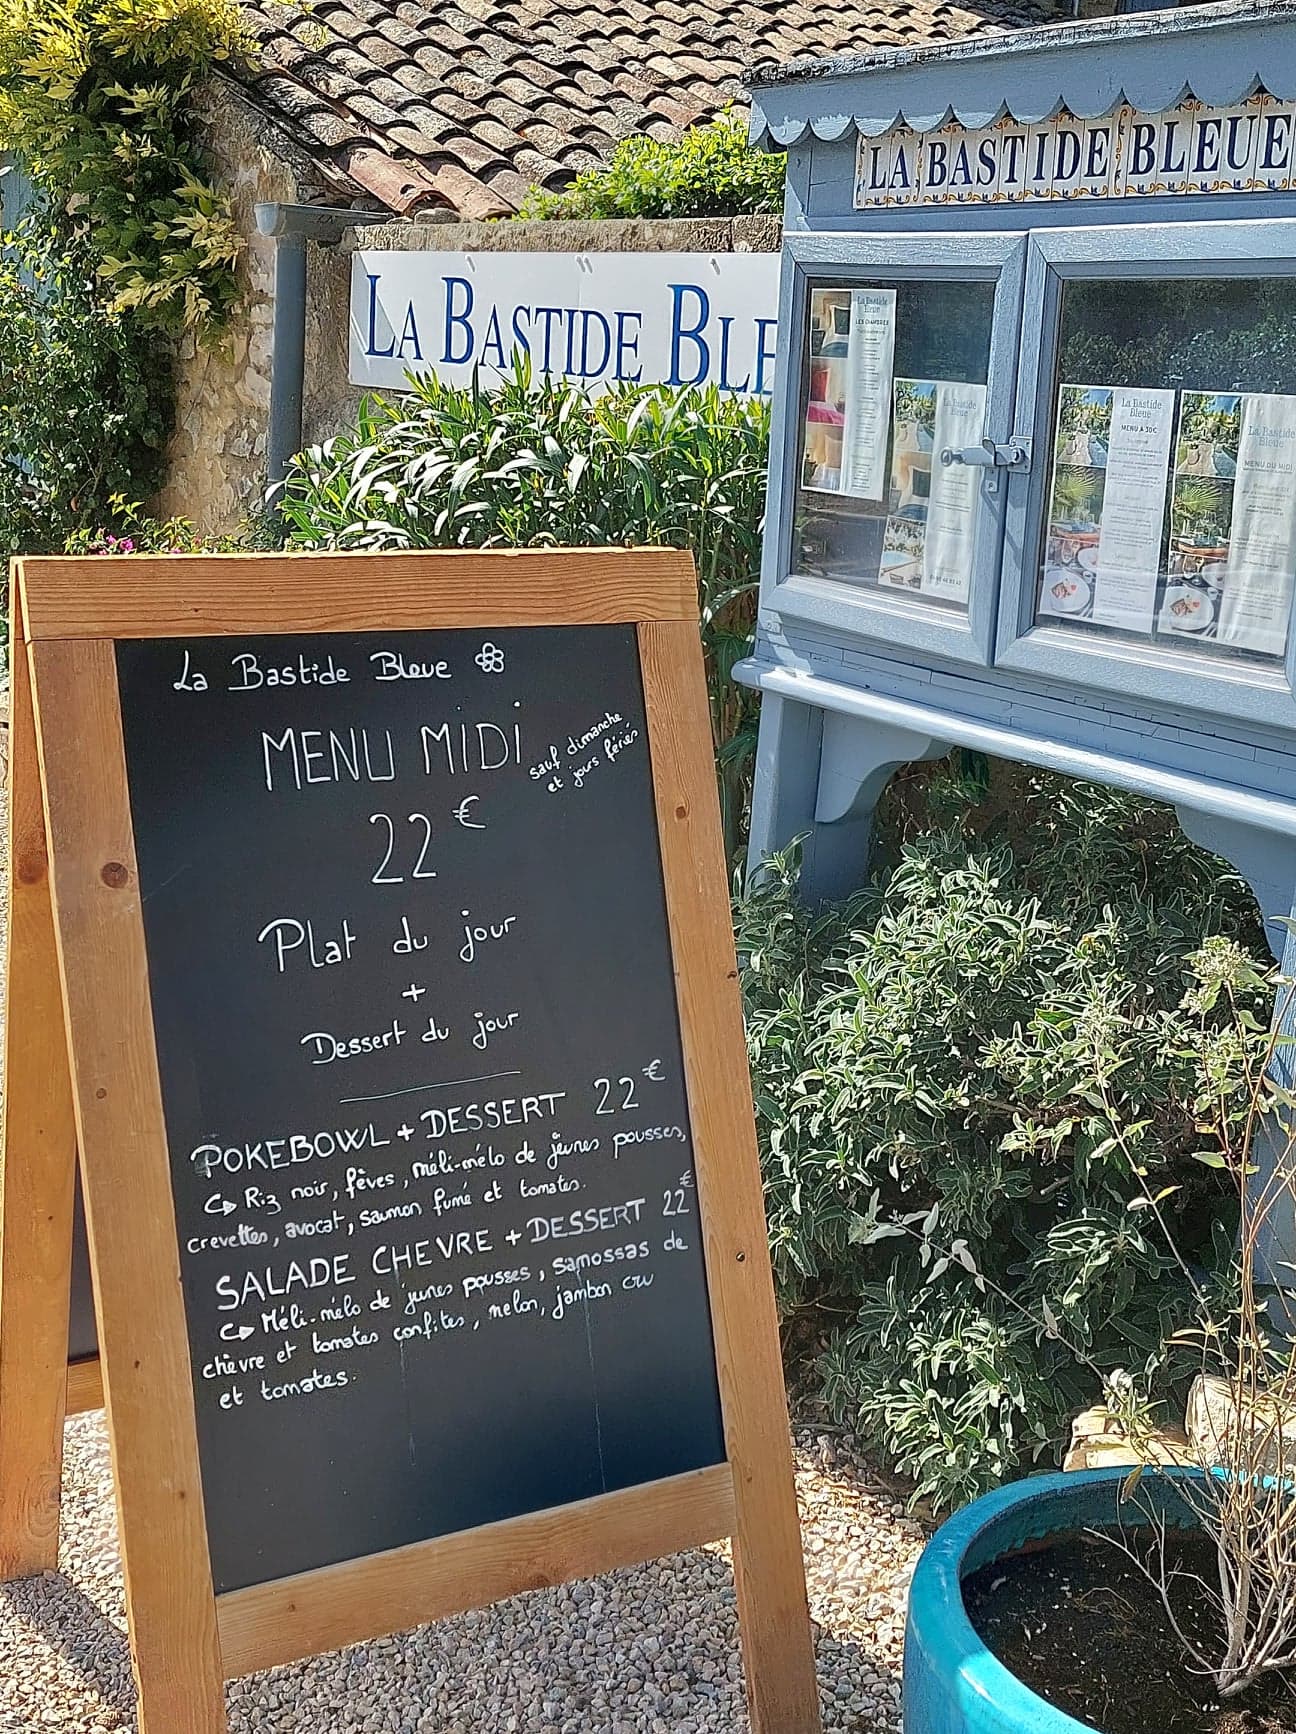 LA BASTIDE BLEUE
LA BASTIDE BLE
La Bastide
Bleue
LES CHAMBRES
La Bastide
Bleue
La Bastide
Bleue
MENU A 30€
La Bastide
Bleue
MENU DU MIDI
La Bastide Bleue
MENU MIDI
sauf dimanche
et jours fériés
22 €
Plat du jour
+
Dessert du jour
POKEBOWL + DESSERT 22 €
Riz noir, fèves, méli-mélo de jeunes pousses,
crevettes, avocat, saumon fumé et tomates.
SALADE CHEVRE + DESSERT 22 €
Méli-mélo de jeunes pousses, samossas de
chèvre et tomates confites, melon, jambon cru
et tomates.